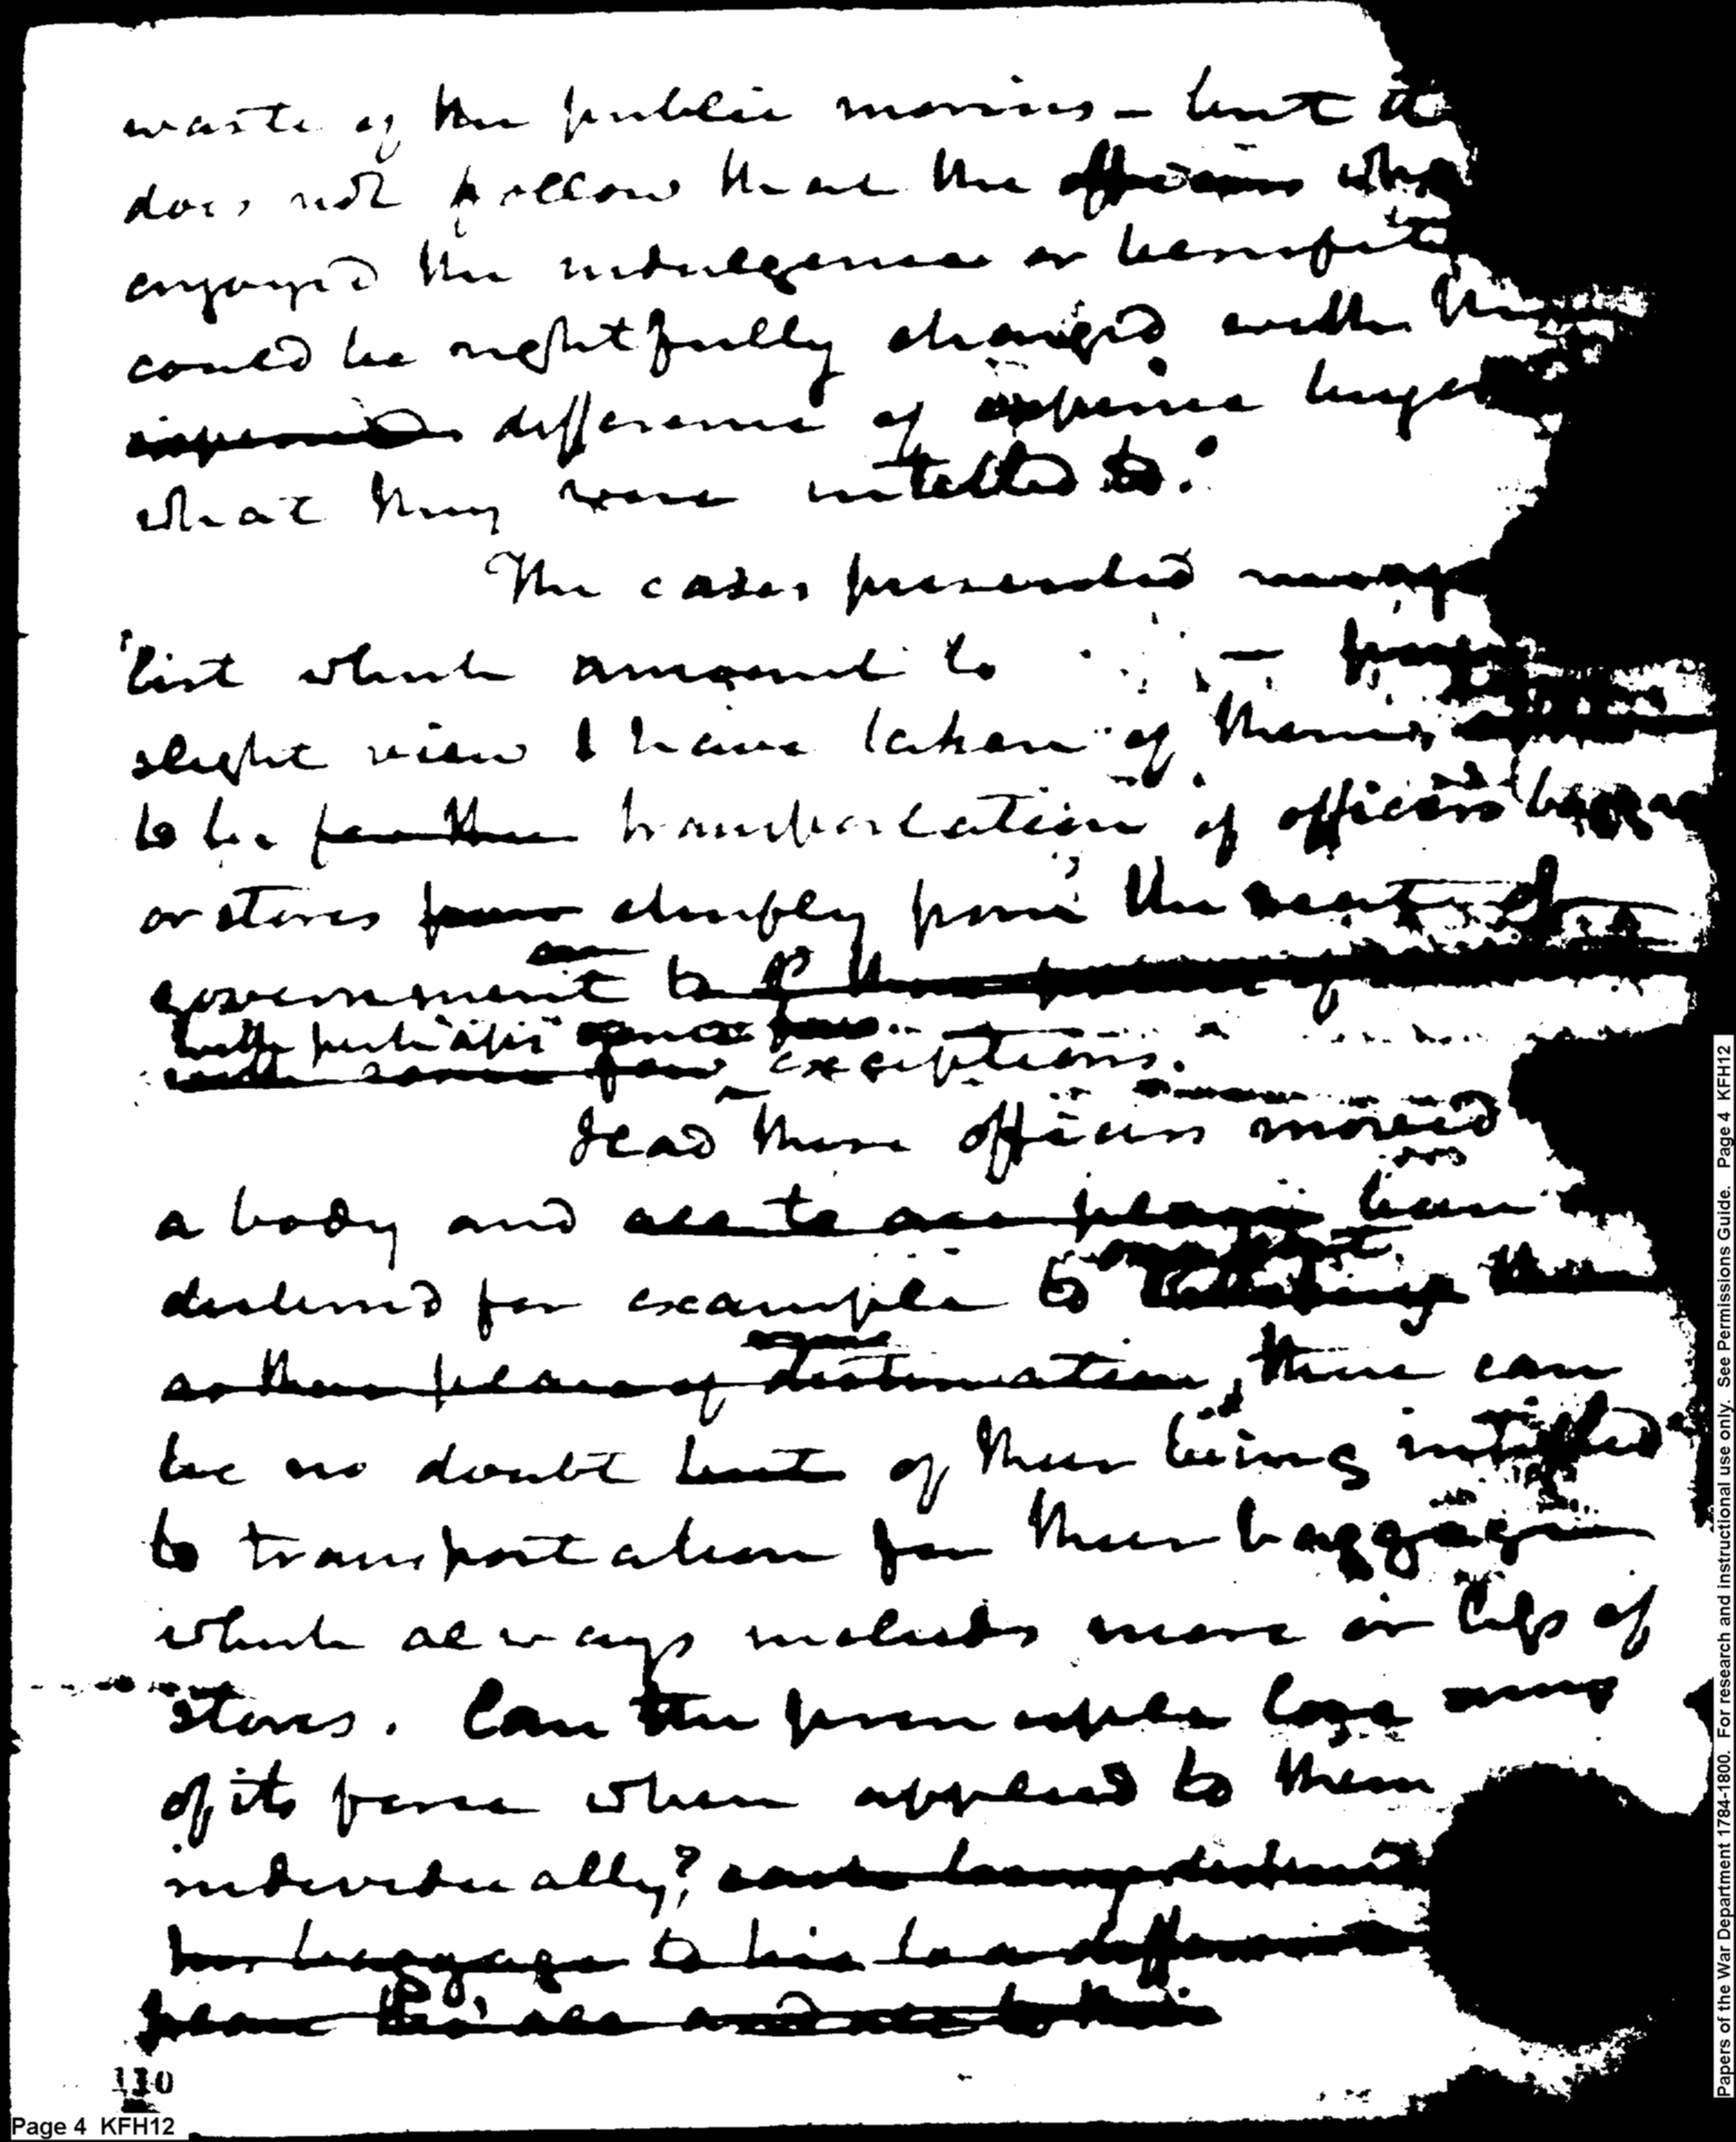 waste of the public monies – but it
does not follow that the officers who
enjoyed the indulgence or benefit
could be rightfully charged with the
difference of expence beyond
what they were intitled to.
The cases presented
list which amount to –
slight view I have taken of them
to be for the transportation of officers bagga
or stores from chiefly from the seat of
government to
with perhaps some few
with some few exceptions.
Had these officers moved
a body and all to one place been
destined for example to
as their place of destination, there can
be no doubt but of their being intitled
to transportation for their baggage
which always includes more or less of
stores. Can the principle lose any
of its force when applied to them
individually?
his baggage to his
110
Page 4 KFH12
Papers of the War Department 1784-1800. For research and instructional use only. See Permissions Guide. Page 4 KFH12